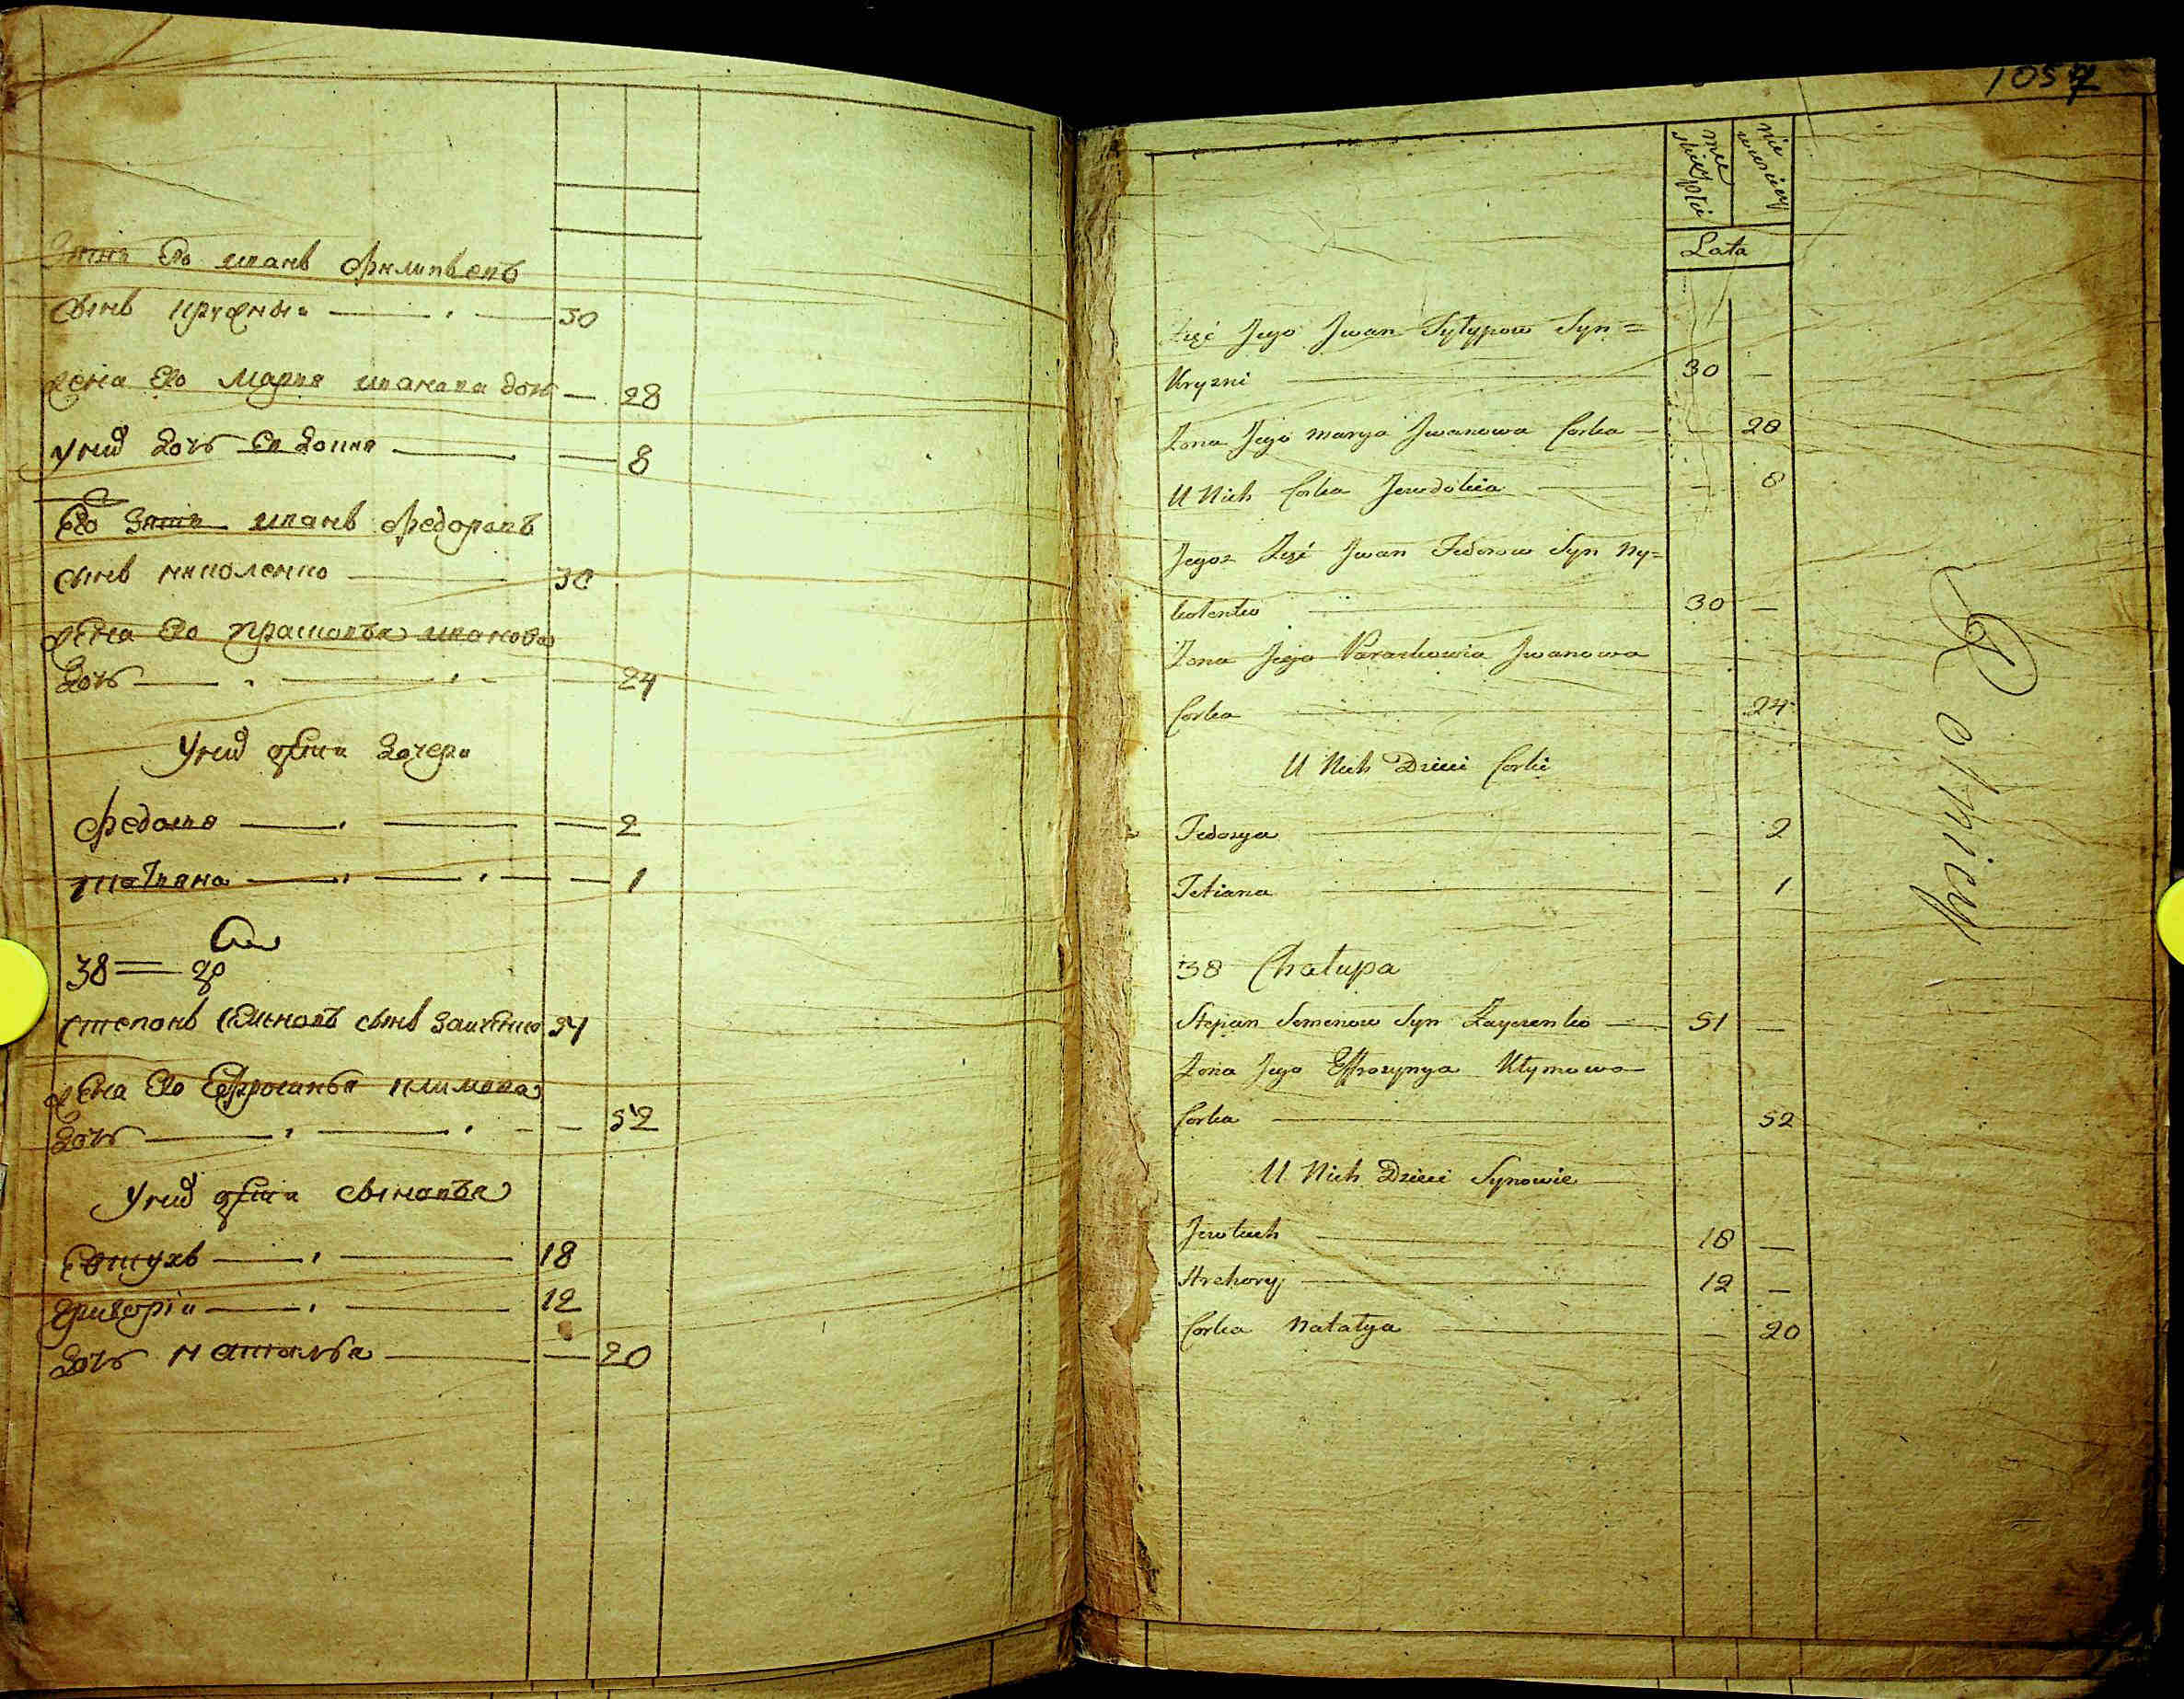 Зять Его иванъ филиповъ
сынъ кручныи — 30
жена Его Мария иванова дочь — 28
у них дочь Евдокия — 8
Его зять иванъ федоровъ
сынъ николенко — 30
жена Его прасковья иванова
дочь — 24
У них дети дочери
федосия — 2
татияна — 1
38 = дв
степанъ семеновъ сынъ заиченко 51
жена Его Ефросинья климова
дочь — 52
У них дети сыновья
Евтухъ — 18
григории — 12
дочь наталья — 20
1057
męskiej płci
niewieściej
Lata
Zięć Jego Jwan Fyłypow Syn =
Kryzni — 30 —
Żona Jego Marya Jwanowa Corka — 28
U Nich Corka Jewdokia — 8
Jegoż Zięć Jwan Fedorow Syn Ny=
kolenko — 30 —
Żona Jego Paraskowia Jwanowa
Corka — 24
U Nich Dzieci Corki
Fedosya — 2
Tetiana — 1
38 Chałupa
Stepan Semenow Syn Zayczenko — 51 —
Żona Jego Effrozynya Kłymowa
Corka — 52
U Nich Dzieci Synowie
Jewtuch — 18 —
Hrehory — 12 —
Corka Natalya — 20